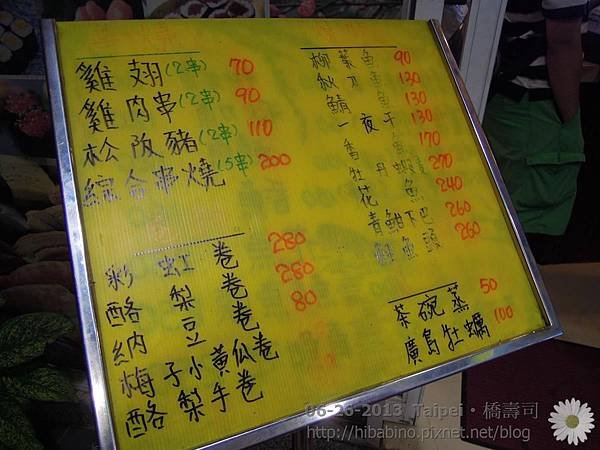 雞翅(2串) 70
雞肉串(2串) 90
松阪豬(2串) 110
綜合串燒(5串) 200
彩虹卷 280
酪梨卷 280
納豆卷 80
梅子小黃瓜卷
酪梨手卷
柳葉魚 90
秋刀魚 130
鯖魚 130
一夜干 130
香魚 170
牡丹蝦 270
花魚 240
青魽下巴 260
魚頭 260
茶碗蒸 50
廣島牡蠣 100
06-26-2013 Taipei・橋壽司
http://hibabino.pixnet.net/blog